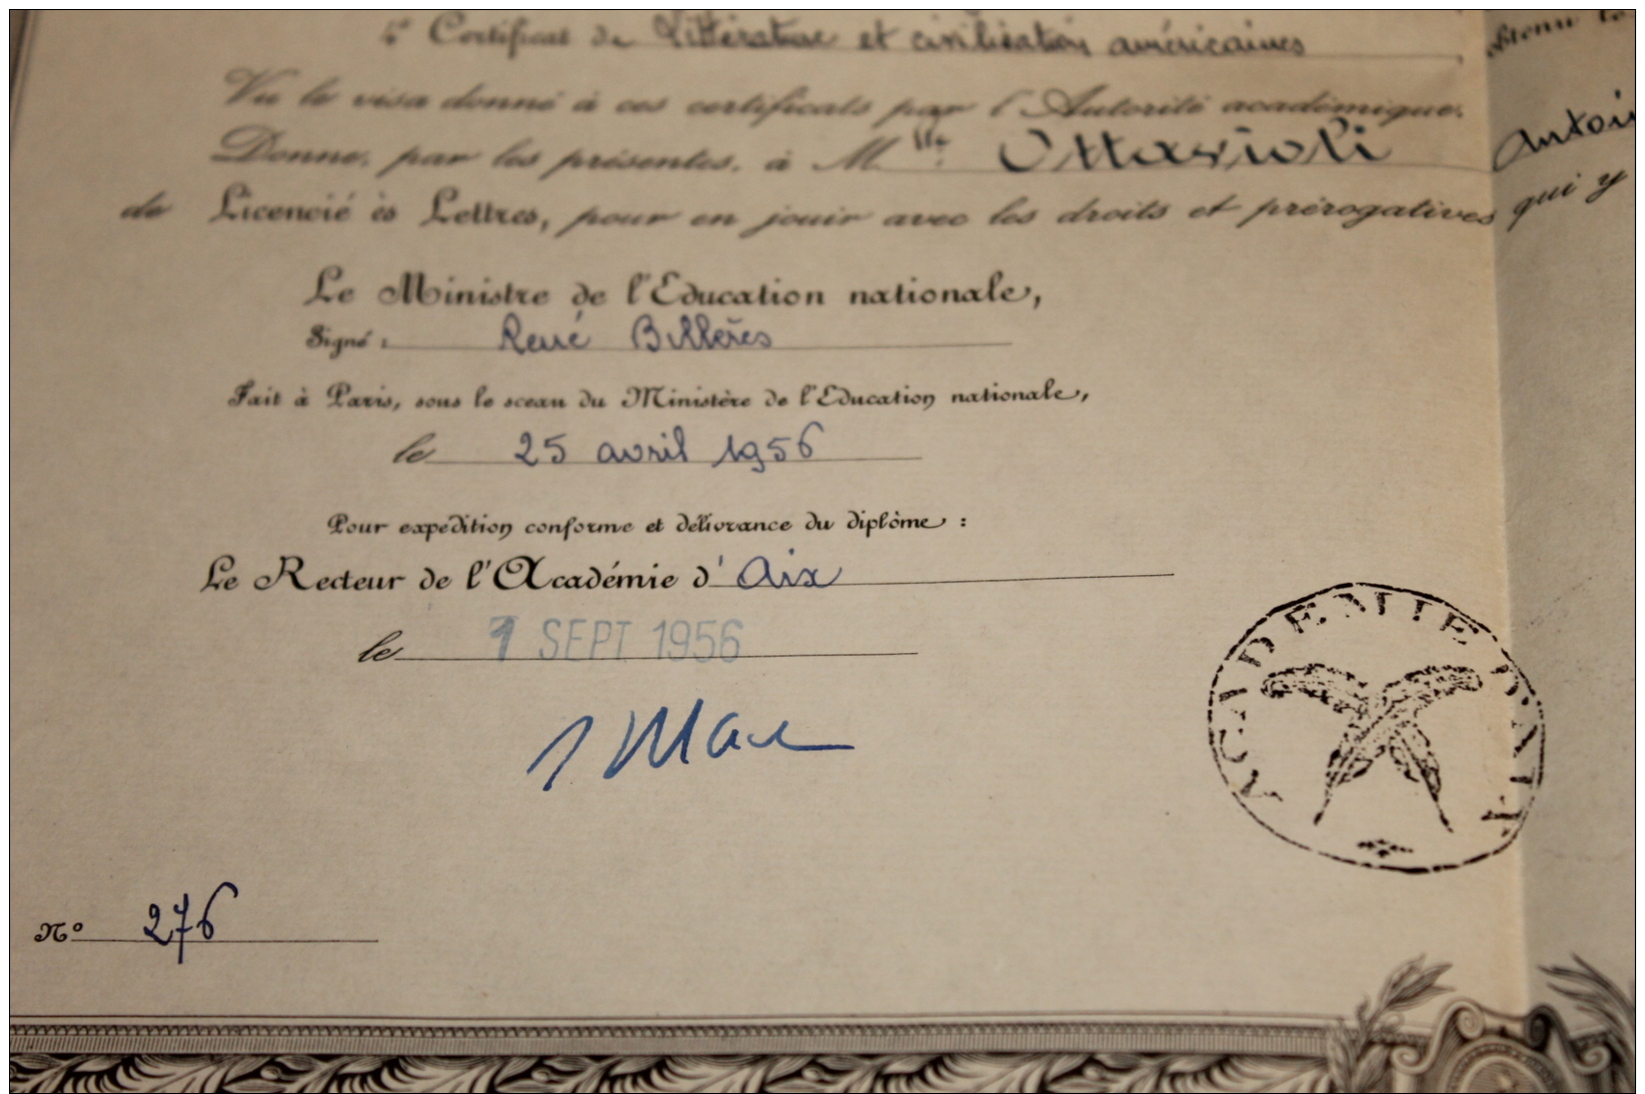 4° Certificat de Littérature et civilisation américaines
obtenu le
Vu le visa donné à ces certificats par l'Autorité académique.
Donne, par les présentes, à M lle Ottavioli Antoi
de Licencié ès Lettres, pour en jouir avec les droits et prérogatives qui y
Le Ministre de l'Education nationale,
Signé : René Billères
Fait à Paris, sous le sceau du Ministère de l'Education nationale,
le 25 avril 1956
Pour expédition conforme et délivrance du diplôme :
Le Recteur de l'Académie d'Aix
le 1 SEPT 1956
ACADEMIE D'AIX
N° 276